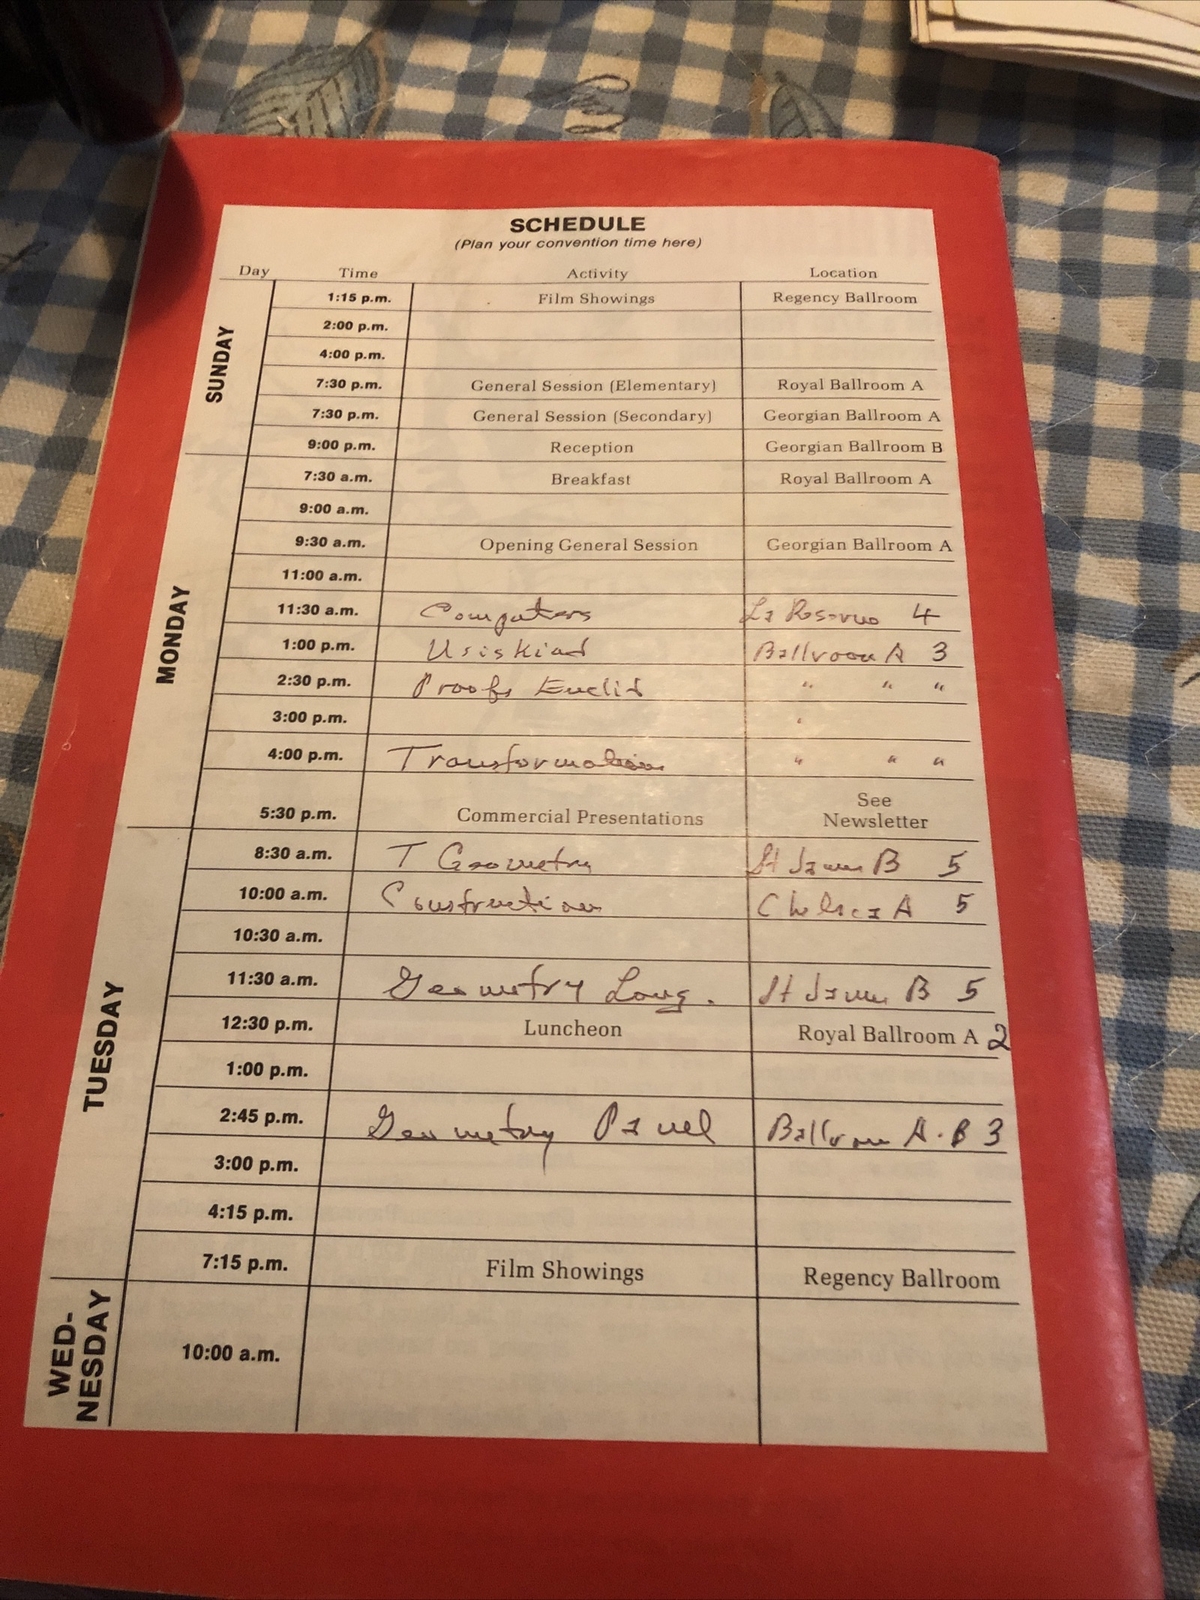 SCHEDULE
(Plan your convention time here)
Day Time Activity Location
SUNDAY
1:15 p.m. Film Showings Regency Ballroom
2:00 p.m.
4:00 p.m.
7:30 p.m. General Session (Elementary) Royal Ballroom A
7:30 p.m. General Session (Secondary) Georgian Ballroom A
9:00 p.m. Reception Georgian Ballroom B
MONDAY
7:30 a.m. Breakfast Royal Ballroom A
9:00 a.m.
9:30 a.m. Opening General Session Georgian Ballroom A
11:00 a.m.
11:30 a.m. Computers 4
1:00 p.m. Ballroom A 3
2:30 p.m. Proofs Euclid " " "
3:00 p.m.
4:00 p.m. Transformation " " "
5:30 p.m. Commercial Presentations See
Newsletter
TUESDAY
8:30 a.m. T Geometry St James B 5
10:00 a.m. Construction Chelsea A 5
10:30 a.m.
11:30 a.m. Geometry St James B 5
12:30 p.m. Luncheon Royal Ballroom A 2
1:00 p.m.
2:45 p.m. Geometry Panel Ballroom A-B 3
3:00 p.m.
4:15 p.m.
7:15 p.m. Film Showings Regency Ballroom
WED-
NESDAY
10:00 a.m.